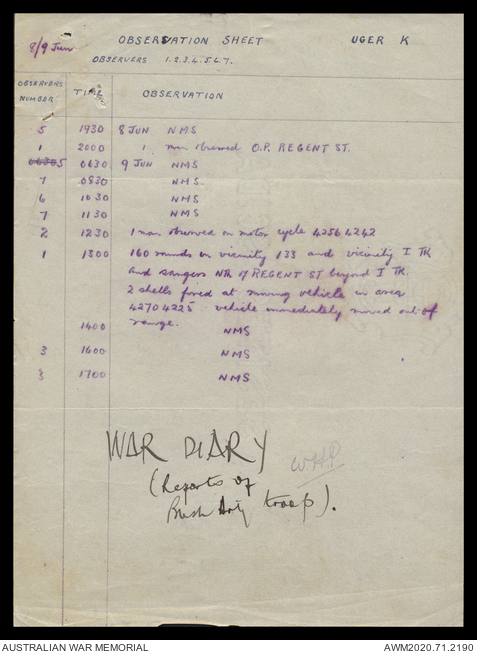 8/9 Jun OBSERVATION SHEET UGER K
OBSERVERS 1.2.3.4.5.6.7.
OBSERVERS NUMBER TIME OBSERVATION
5 1930 8 JUN NMS
1 2000 1 man observed O.P. REGENT ST.
5 0630 9 JUN NMS
7 0830 NMS
6 1030 NMS
7 1130 NMS
2 1230 1 man observed on motor cycle 42564242
1 1300 160 rounds in vicinity 133 and vicinity I TK
and sangers Nth of REGENT ST beyond I TK.
2 shells fired at moving vehicle in area
42704225 vehicle immediately moved out of
range.
1400 NMS
3 1600 NMS
3 1700 NMS
WAR DIARY
WHP
(Reports of
Bush Arty troop).
AUSTRALIAN WAR MEMORIAL AWM2020.71.2190